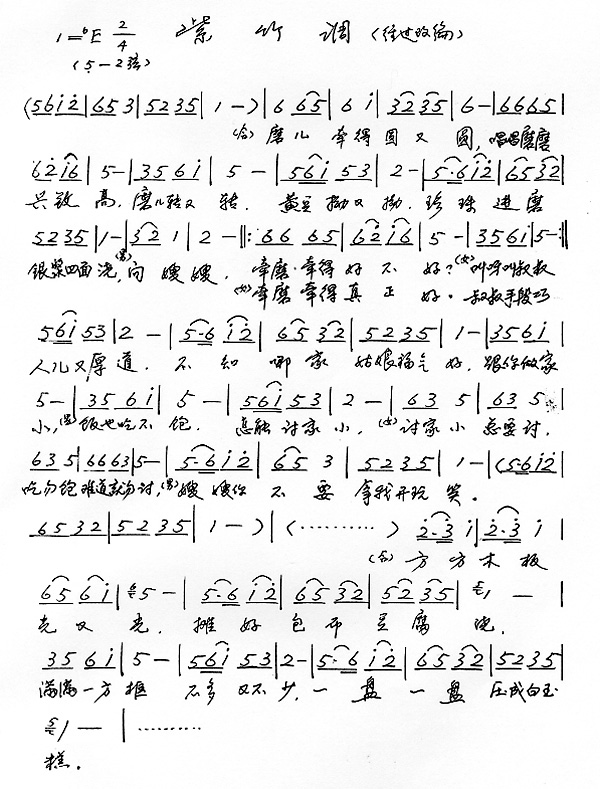 1=ᵇE 2/4 紫竹调
(5-2弦)
(561̇2̇|653|5235|1-)|6 65|6 1̇|3235|6-|6665|
(合) 磨儿 牵得 圆又 圆, 唱唱磨磨
62̇1̇6|5-|3561̇|5-|561̇ 53|2-|5·61̇2̇|6532|
兴致 高, 磨儿转又 转. 黄豆拗又 拗, 珍珠 进磨
5235|1-|32 1|2-‖:66 65|62̇1̇6|5-|3561̇|5-:‖
银浆四面 浇, (男)问 嫂嫂, 牵磨牵得 好不 好? (女)叫呀叫叔叔
(女)牵磨牵得 真正 好. 叔叔手段巧
561̇53|2-|5·6 1̇2̇|65 32|5235|1-|3561̇|
人儿又厚道. 不知 哪家 姑娘福气 好, 跟你做家
5-|35 61̇|5-|561̇53|2-|63 5|63 5|
小, (男)饭也吃不 饱. 讨家 小, (女)讨家小 总要讨,
635|6663|5-|5·61̇2̇|65 3|5235|1-|(5·61̇2̇|
吃勿饱难道就勿讨, (男)嫂嫂你 不要 拿我开玩 笑.
6532|5235|1-)|(··········) 2̇·3̇ 1̇|2̇·3̇ 1̇|
(合) 方方木板
65 61̇|5-|5·6 1̇2̇|65 32|52 35|1̇-|
光又 光, 摊好 包布 豆腐 浇,
35 61̇|5-|561̇ 53|2-|5·6 1̇2̇|65 32|5235|
满满一方框 不多又不少, 一盘 一盘 压成白玉
1-|··········
糕.